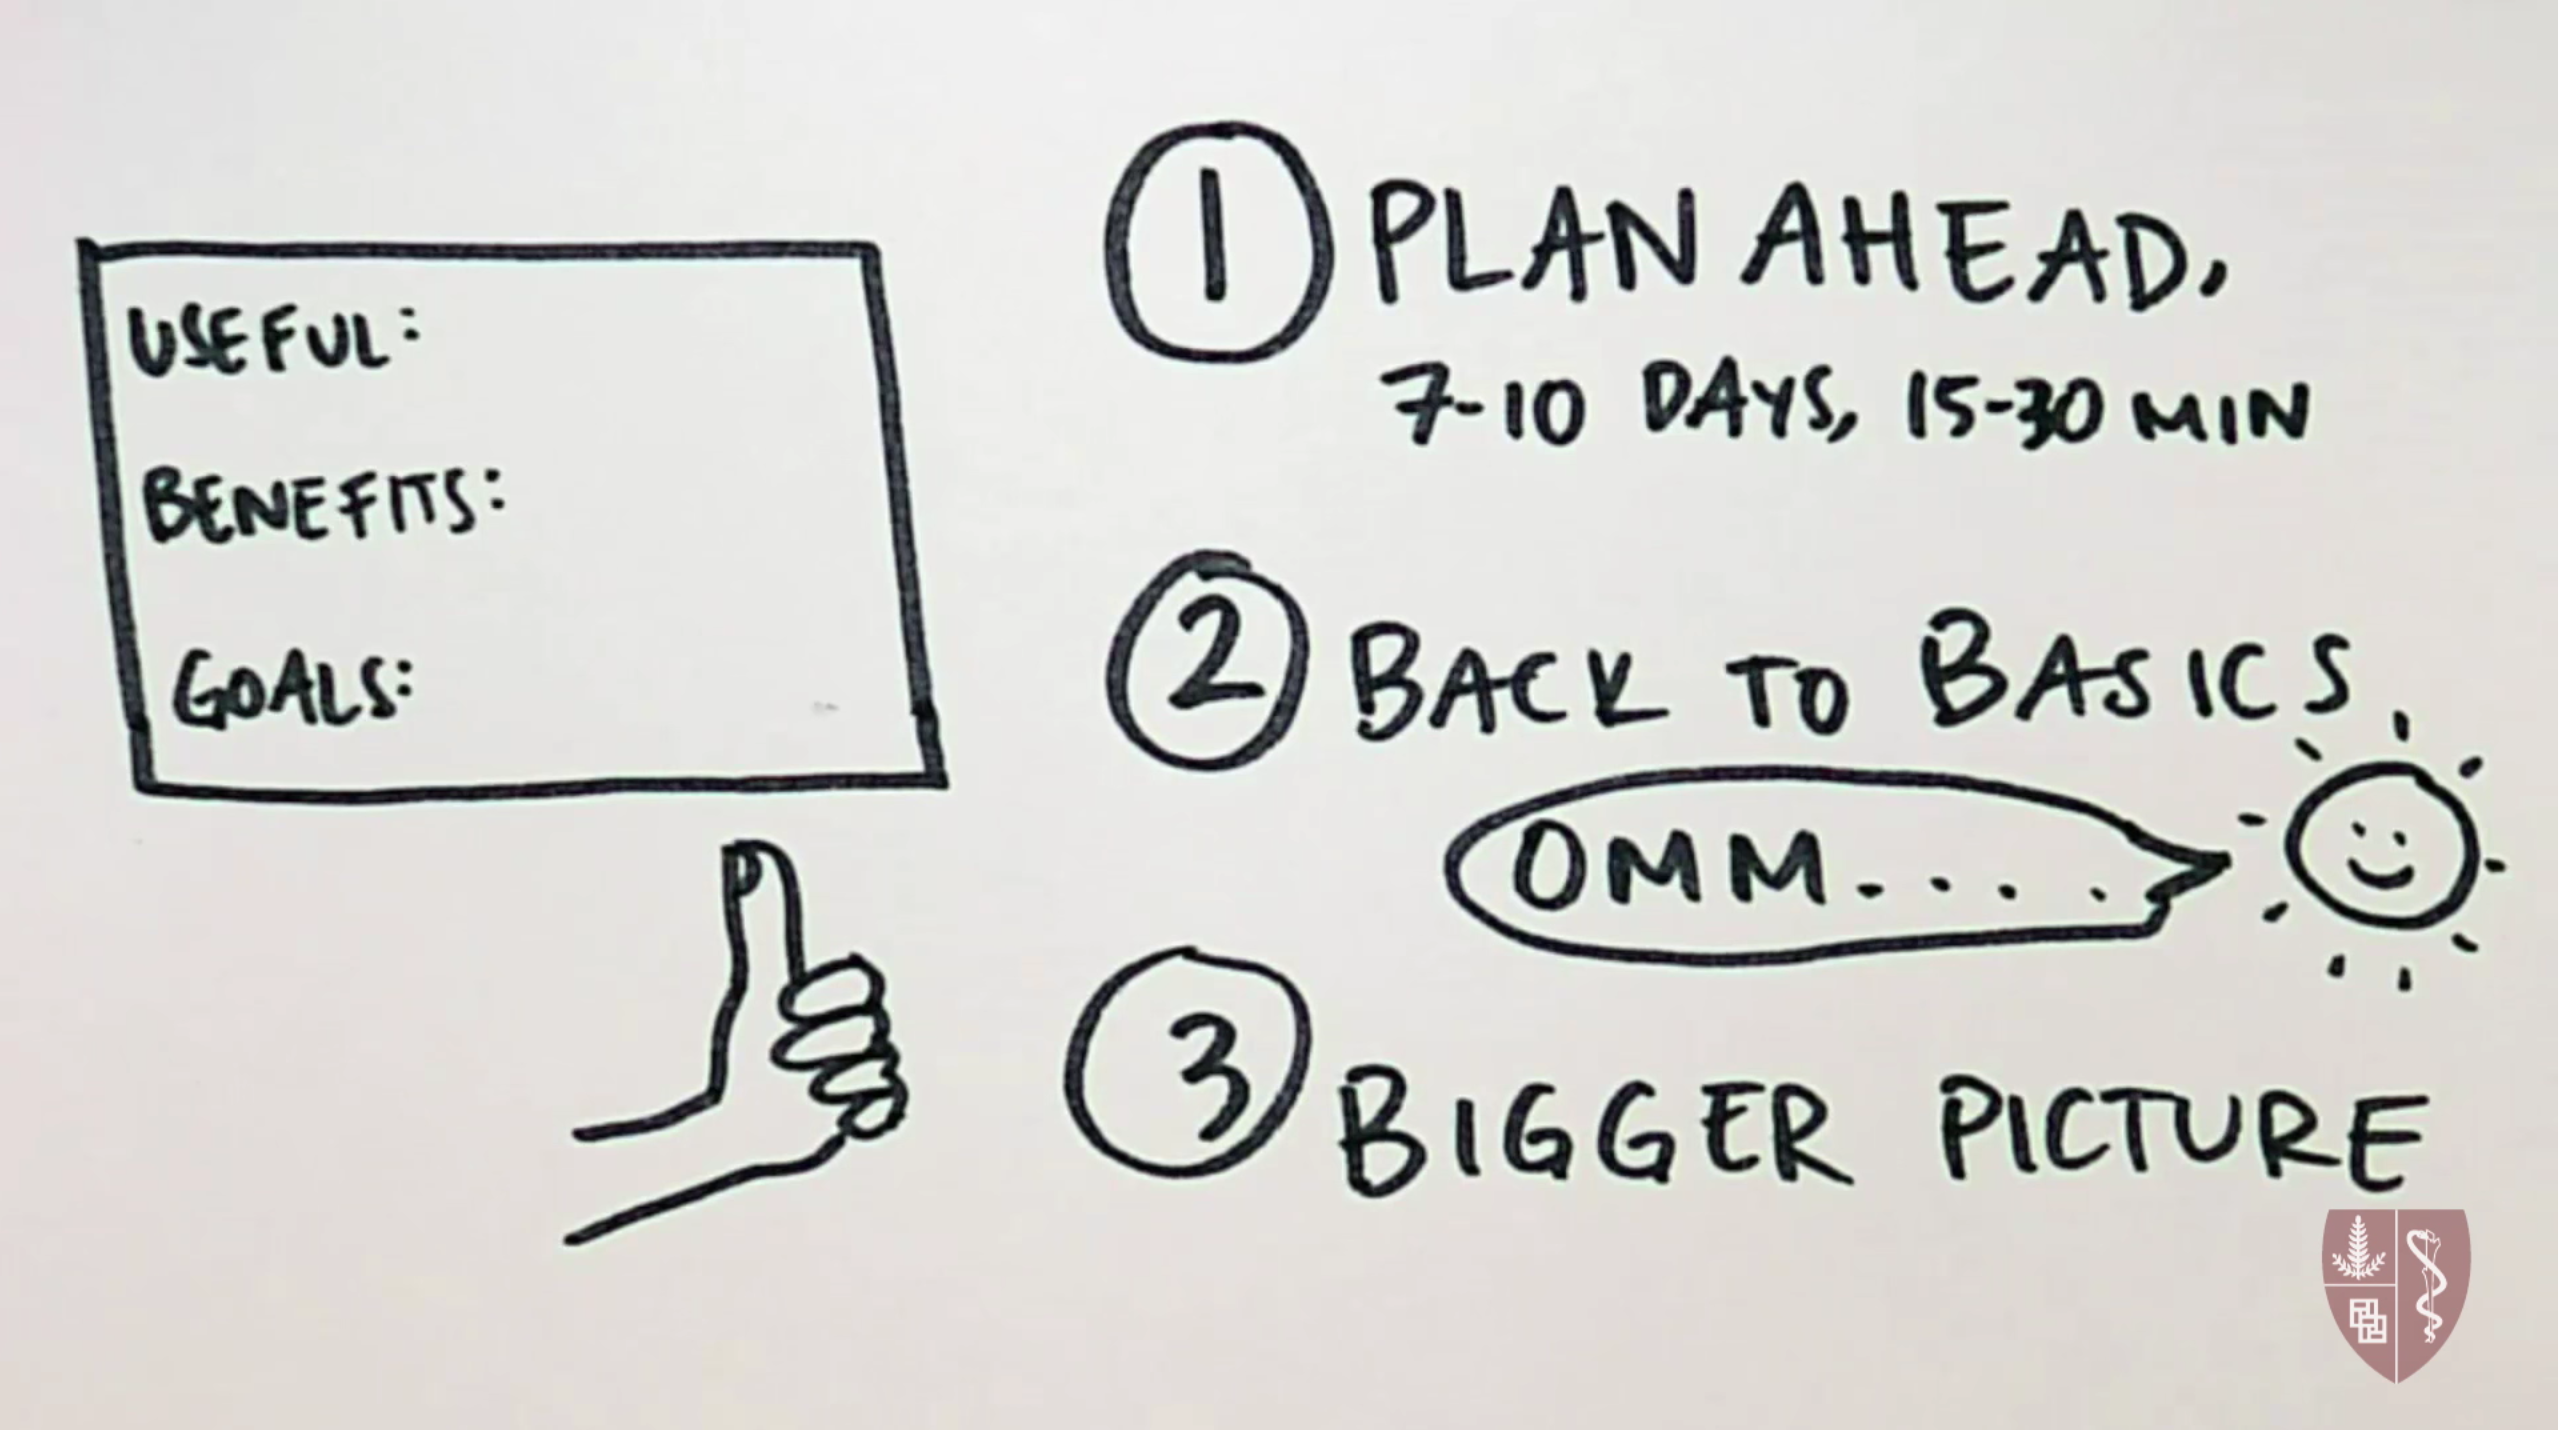 USEFUL:
BENEFITS:
GOALS:
1 PLAN AHEAD,
7-10 DAYS, 15-30 MIN
2 BACK TO BASICS.
OMM....
3 BIGGER PICTURE